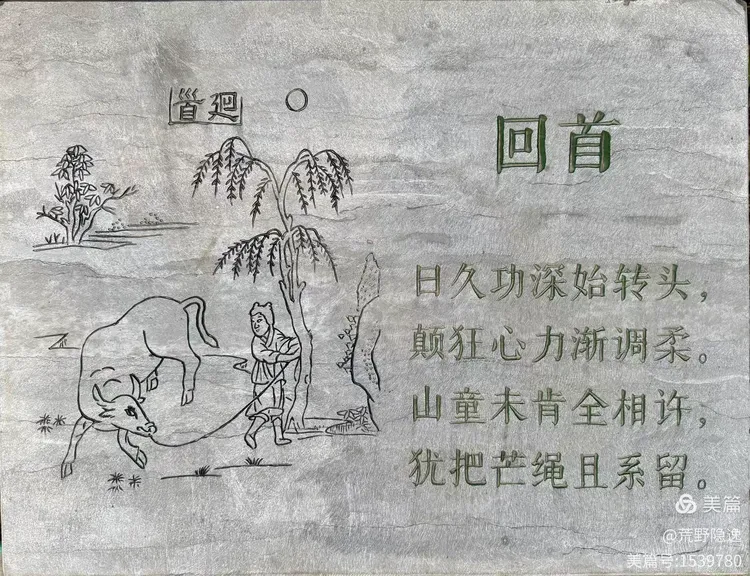 廻首
回首
日久功深始转头，
颠狂心力渐调柔。
山童未肯全相许，
犹把芒绳且系留。
美篇
@荒野隐逸
美篇号:1539780